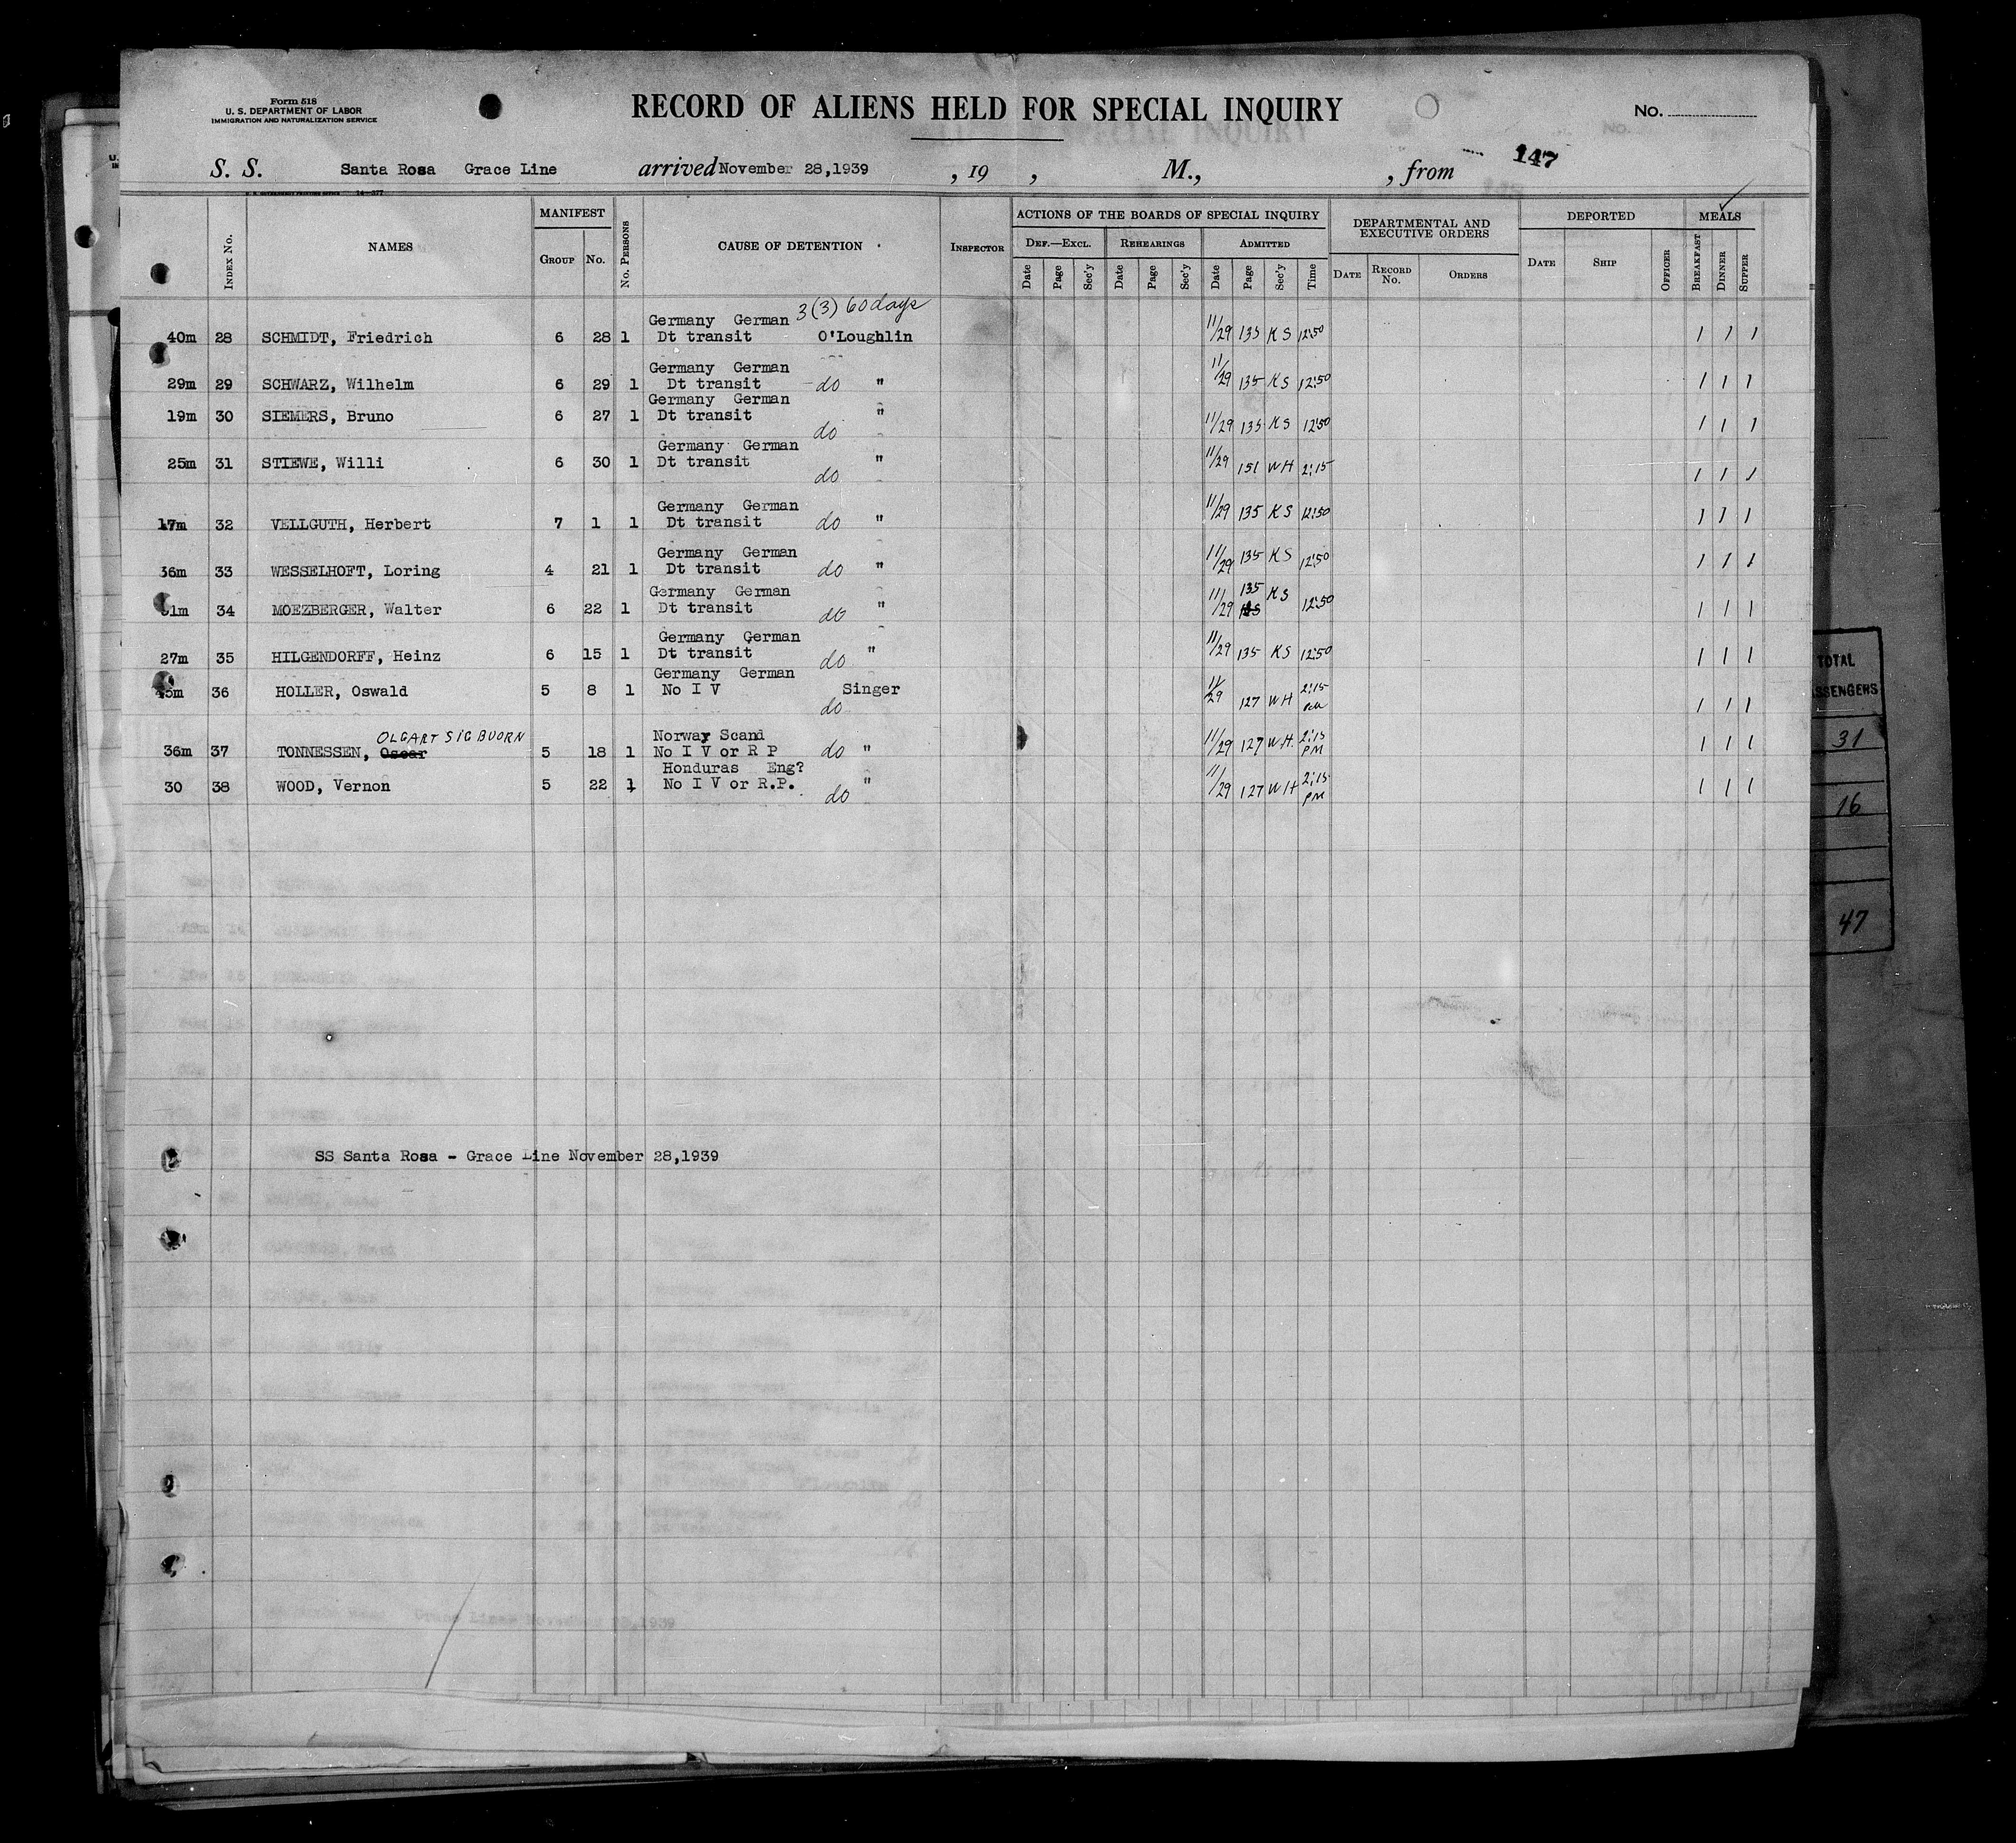 Form 518
U. S. DEPARTMENT OF LABOR
IMMIGRATION AND NATURALIZATION SERVICE
RECORD OF ALIENS HELD FOR SPECIAL INQUIRY
No.
147
S. S. Santa Rosa Grace Line arrived November 28,1939 , 19 , M., , from
14—377
Index No. NAMES MANIFEST Group No. No. Persons CAUSE OF DETENTION Inspector ACTIONS OF THE BOARDS OF SPECIAL INQUIRY DEPARTMENTAL AND EXECUTIVE ORDERS DEPORTED MEALS
Def.—Excl. Rehearings Admitted
Date Page Sec'y Date Page Sec'y Date Page Sec'y Time Date Record No. Orders Date Ship Officer Breakfast Dinner Supper
3(3) 60 days
Germany German
40m 28 SCHMIDT, Friedrich 6 28 1 Dt transit O'Loughlin 11/29 135 KS 12:50 1 1 1
Germany German
29m 29 SCHWARZ, Wilhelm 6 29 1 Dt transit do " 11/29 135 KS 12:50 1 1 1
Germany German
19m 30 SIEMERS, Bruno 6 27 1 Dt transit do " 11/29 135 KS 12:50 1 1 1
Germany German
25m 31 STIEWE, Willi 6 30 1 Dt transit do " 11/29 151 WH 2:15 1 1 1
Germany German
17m 32 VELLGUTH, Herbert 7 1 1 Dt transit do " 11/29 135 KS 12:50 1 1 1
Germany German
36m 33 WESSELHOFT, Loring 4 21 1 Dt transit do " 11/29 135 KS 12:50 1 1 1
Germany German
1m 34 MOEZBERGER, Walter 6 22 1 Dt transit do " 11/29 135 KS 12:50 1 1 1
Germany German
27m 35 HILGENDORFF, Heinz 6 15 1 Dt transit do " 11/29 135 KS 12:50 1 1 1
Germany German
5m 36 HOLLER, Oswald 5 8 1 No I V Singer do 11/29 127 WH 2:15 PM 1 1 1
OLGART SIGBUORN
Norway Scand
36m 37 TONNESSEN, Oscar 5 18 1 No I V or R P do " 11/29 127 WH. 2:15 PM 1 1 1
Honduras Eng?
30 38 WOOD, Vernon 5 22 1 No I V or R.P. do " 11/29 127 WH 2:15 PM 1 1 1
SS Santa Rosa - Grace Line November 28,1939
TOTAL
SSENGERS
31
16
47